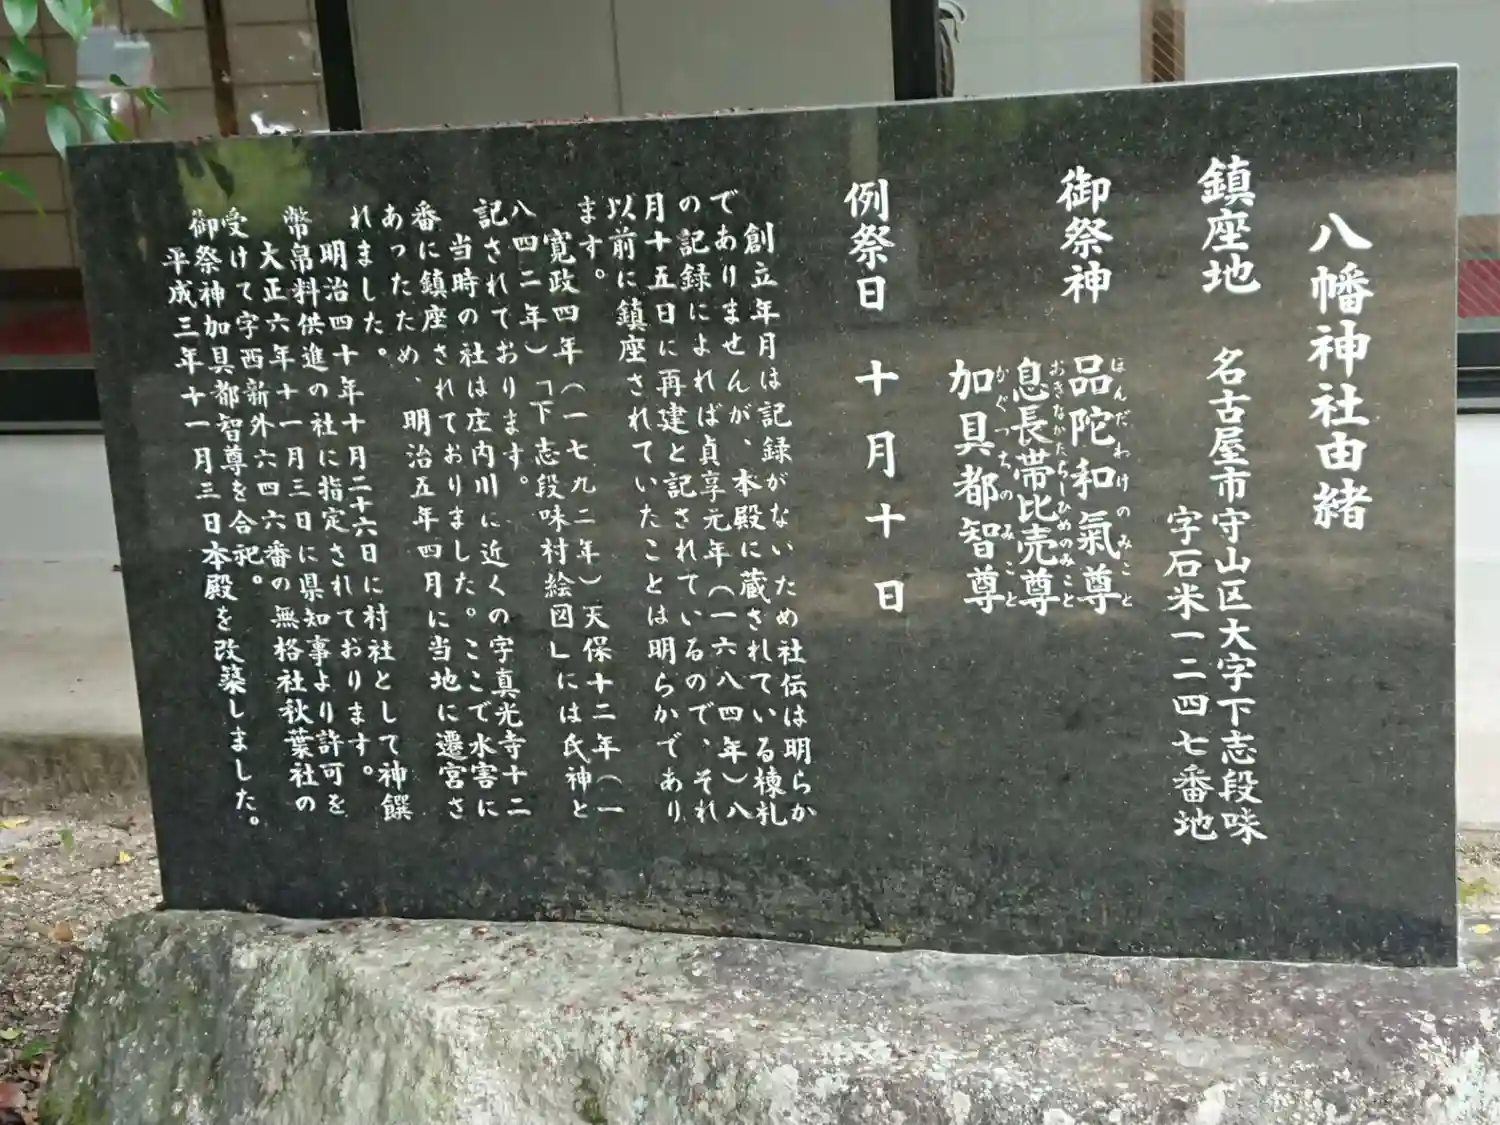 八幡神社由緒
鎮座地　名古屋市守山区大字下志段味
字石米一二四七番地
御祭神　品陀和氣尊
ほんだわけのみこと
息長帯比売尊
おきながたらしひめのみこと
加具都智尊
かぐつちのみこと
例祭日　十月十日
創立年月は記録がないため社伝は明らか
でありませんが、本殿に蔵されている棟札
の記録によれば貞享元年(一六八四年)八
月十五日に再建と記されているので、それ
以前に鎮座されていたことは明らかであり
ます。
寛政四年(一七九二年)天保十二年(一
八四二年)「下志段味村絵図」には氏神と
記されております。
当時の社は庄内川に近くの字真光寺十二
番に鎮座されておりました。ここで水害に
あったため、明治五年四月に当地に遷宮さ
れました。
明治四十年十月二十六日に村社として神饌
幣帛料供進の社に指定されております。
大正六年十一月三日に県知事より許可を
受けて字西新外六四六番の無格社秋葉社の
御祭神加具都智尊を合祀。
平成三年十一月三日本殿を改築しました。